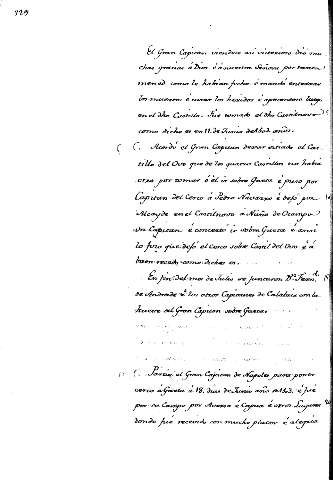 129
El Gran Capitan viendose asi victorioso dio mu
chas gracias á Dios é á nuestra Señora por
como lo habian fecho é mandó enterrar
los muertos é curar los heridos é aposentarse luego
en el dho Castillo. Fué tomado el dho Castilnovo
como dicho es en 11 de Junio de 1503 años.
( (. Mandó el Gran Capitan dexar sitiado el Cas
tillo del Ovo que de los quatro Castillos no habia
otro por tomar é él ir sobre Gaeta é puso por
Capitan del Cerco á Pedro Navarro é dexó por
Alcayde en el Castilnovo á Nuño de Ocampo
su Capitan é concertó ir sobre Gaeta é ansi
lo fizo que dexó el cerco sobre Castil del Ovo é á
buen recado como dicho es.
En fin del mes de Julio se juntaron Dn. Fern.do
de Andrade é los otros Capitanes de Calabria con la
hueste del Gran Capitan sobre Gaeta.
(. Partió el Gran Capitan de Napoles para poner
cerco á Gaeta á 18 dias de Junio año de 1503 é fué
por su Campo por Aversa é Capua é otros Lugares
donde fué recevido con mucho placer é alegria